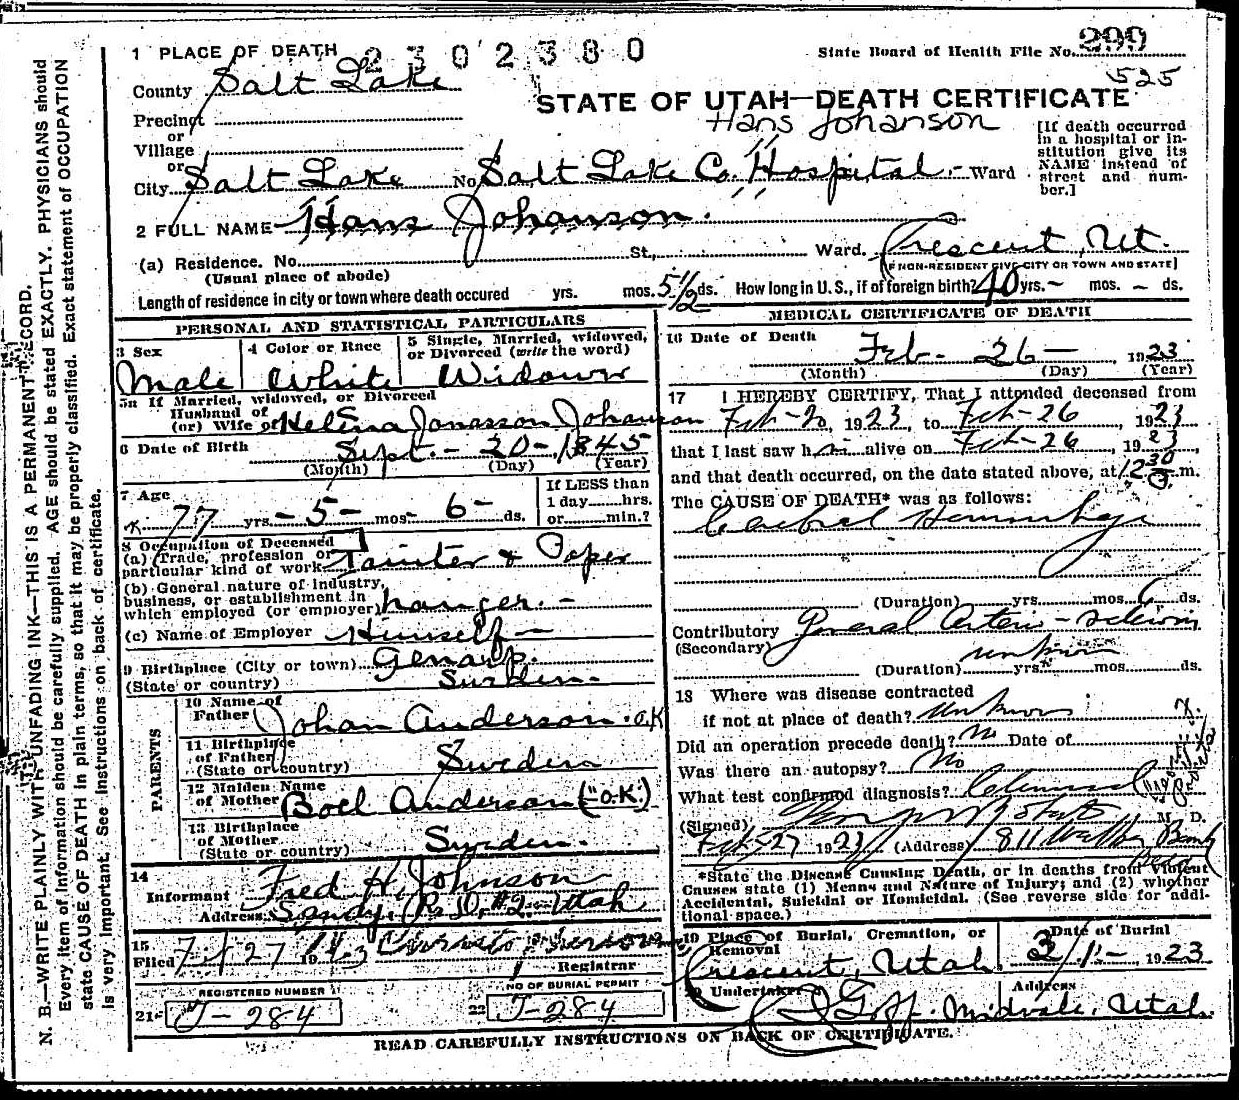 1 PLACE OF DEATH 2302380
State Board of Health File No. 299
525
County Salt Lake
STATE OF UTAH—DEATH CERTIFICATE
Hans Johanson
Precinct
or
Village
or
City Salt Lake No. Salt Lake Co. Hospital - Ward
[If death occurred
in a hospital or in-
stitution give its
NAME instead of
street and num-
ber.]
2 FULL NAME Hans Johanson.
(a) Residence. No. St, Ward. Crescent, Ut.
(Usual place of abode)
[IF NON-RESIDENT GIVE CITY OR TOWN AND STATE]
Length of residence in city or town where death occured yrs. mos. 5 1/2 ds. How long in U.S., if of foreign birth? 40 yrs. - mos. - ds.
PERSONAL AND STATISTICAL PARTICULARS
3 Sex
Male
4 Color or Race
White
5 Single, Married, widowed,
or Divorced (write the word)
Widower
5a If Married, widowed, or Divorced
Husband of
(or) Wife of Helena Jonasson Johanson
6 Date of Birth Sept. - 20 - 1845
(Month) (Day) (Year)
7 Age
77 yrs - 5 - mos - 6 - ds.
If LESS than
1 day......hrs.
or......min.?
8 Occupation of Deceased
(a) Trade, profession or
particular kind of work Painter & Paper
(b) General nature of industry,
business, or establishment in
which employed (or employer) hanger. -
(c) Name of Employer Himself -
9 Birthplace (City or town) Genarp.
(State or country) Sweden -
PARENTS
10 Name of
Father Johan Anderson. O.K
11 Birthplace
of Father
(State or country) Sweden
12 Maiden Name
of Mother Boel Anderson ("O.K.)
13 Birthplace
of Mother
(State or country) Sweden.
14
Informant Fred H. Johnson
Address: Sandy, R.D. #2 - Utah
15
Filed 27
Registrar
REGISTERED NUMBER
21- J-284
NO OF BURIAL PERMIT
22 J-284
MEDICAL CERTIFICATE OF DEATH
16 Date of Death
Feb - 26 - 1923
(Month) (Day) (Year)
17 I HEREBY CERTIFY, That I attended deceased from
Feb-20, 1923, to Feb-26 1923
that I last saw him alive on Feb-26, 1923,
and that death occurred, on the date stated above, at 12 30 m.
The CAUSE OF DEATH* was as follows:
Cerebral Hemorrhage
(Duration) yrs. mos. 6 ds.
Contributory General Arterio-sclerosis
(Secondary)
(Duration) unknown yrs. mos. ds.
18 Where was disease contracted
if not at place of death? Unknown
Did an operation precede death? No Date of
Was there an autopsy? No
What test confirmed diagnosis? Clinical
(Signed) M D.
Feb-27 1923 (Address) 811 Walker Bank
Bldg
*State the Disease Causing Death, or in deaths from Violent
Causes state (1) Means and Nature of Injury; and (2) whether
Accidental, Suicidal or Homicidal. (See reverse side for addi-
tional space.)
19 Place of Burial, Cremation, or
Removal
Crescent, Utah
Date of Burial
3/1 - 1923
20 Undertaker Goff. Address Midvale, Utah.
READ CAREFULLY INSTRUCTIONS ON BACK OF CERTIFICATE.
N. B.—WRITE PLAINLY WITH UNFADING INK—THIS IS A PERMANENT RECORD.
Every item of information should be carefully supplied. AGE should be stated EXACTLY. PHYSICIANS should
state CAUSE OF DEATH in plain terms, so that it may be properly classified. Exact statement of OCCUPATION
is very important. See instructions on back of certificate.